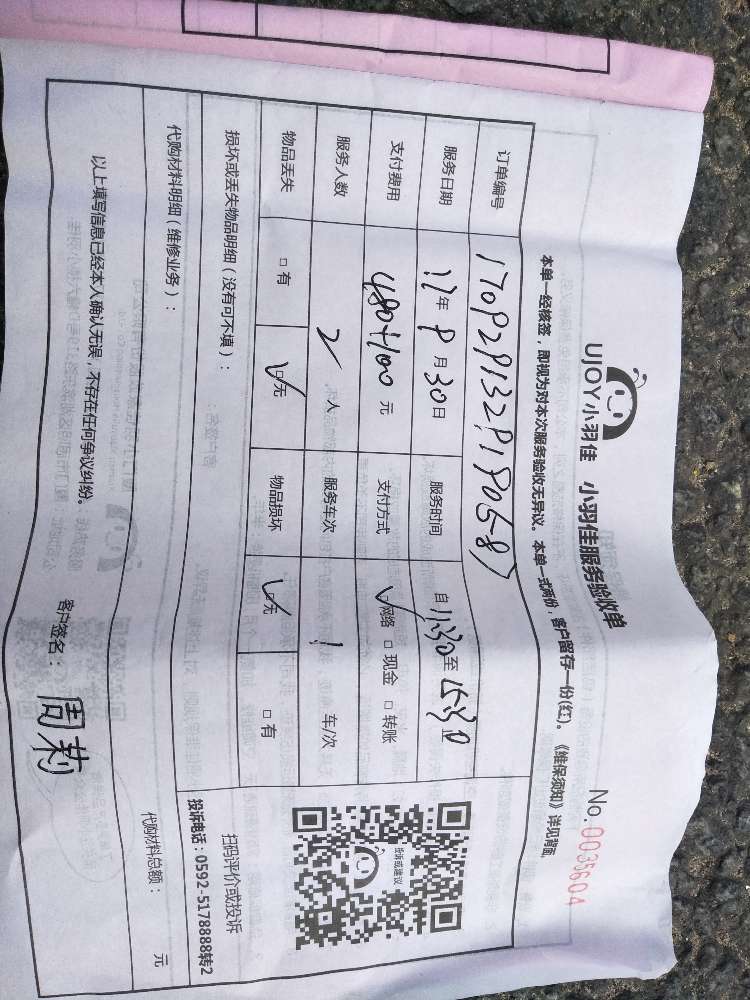 UJOY小羽佳 小羽佳服务验收单
No.0035604
本单一经核签，即视为对本次服务验收无异议。本单一式两份，客户留存一份(红)。《维保须知》详见背面
订单编号
服务日期 17年9月30日 服务时间 自11:30至15:30
支付费用 480+100元 支付方式 ☑网络 □现金 □转账
服务人数 2人 服务车次 1 车/次
物品丢失 □有 ☑无 物品损坏 ☑无 □有
损坏或丢失物品明细（没有可不填）：
代购材料明细（维修业务）：
代购材料总额： 元
以上填写信息已经本人确认无误，不存在任何争议纠纷。
客户签名：周莉
投诉或建议
扫码评价或投诉
投诉电话：0592-5178888转2